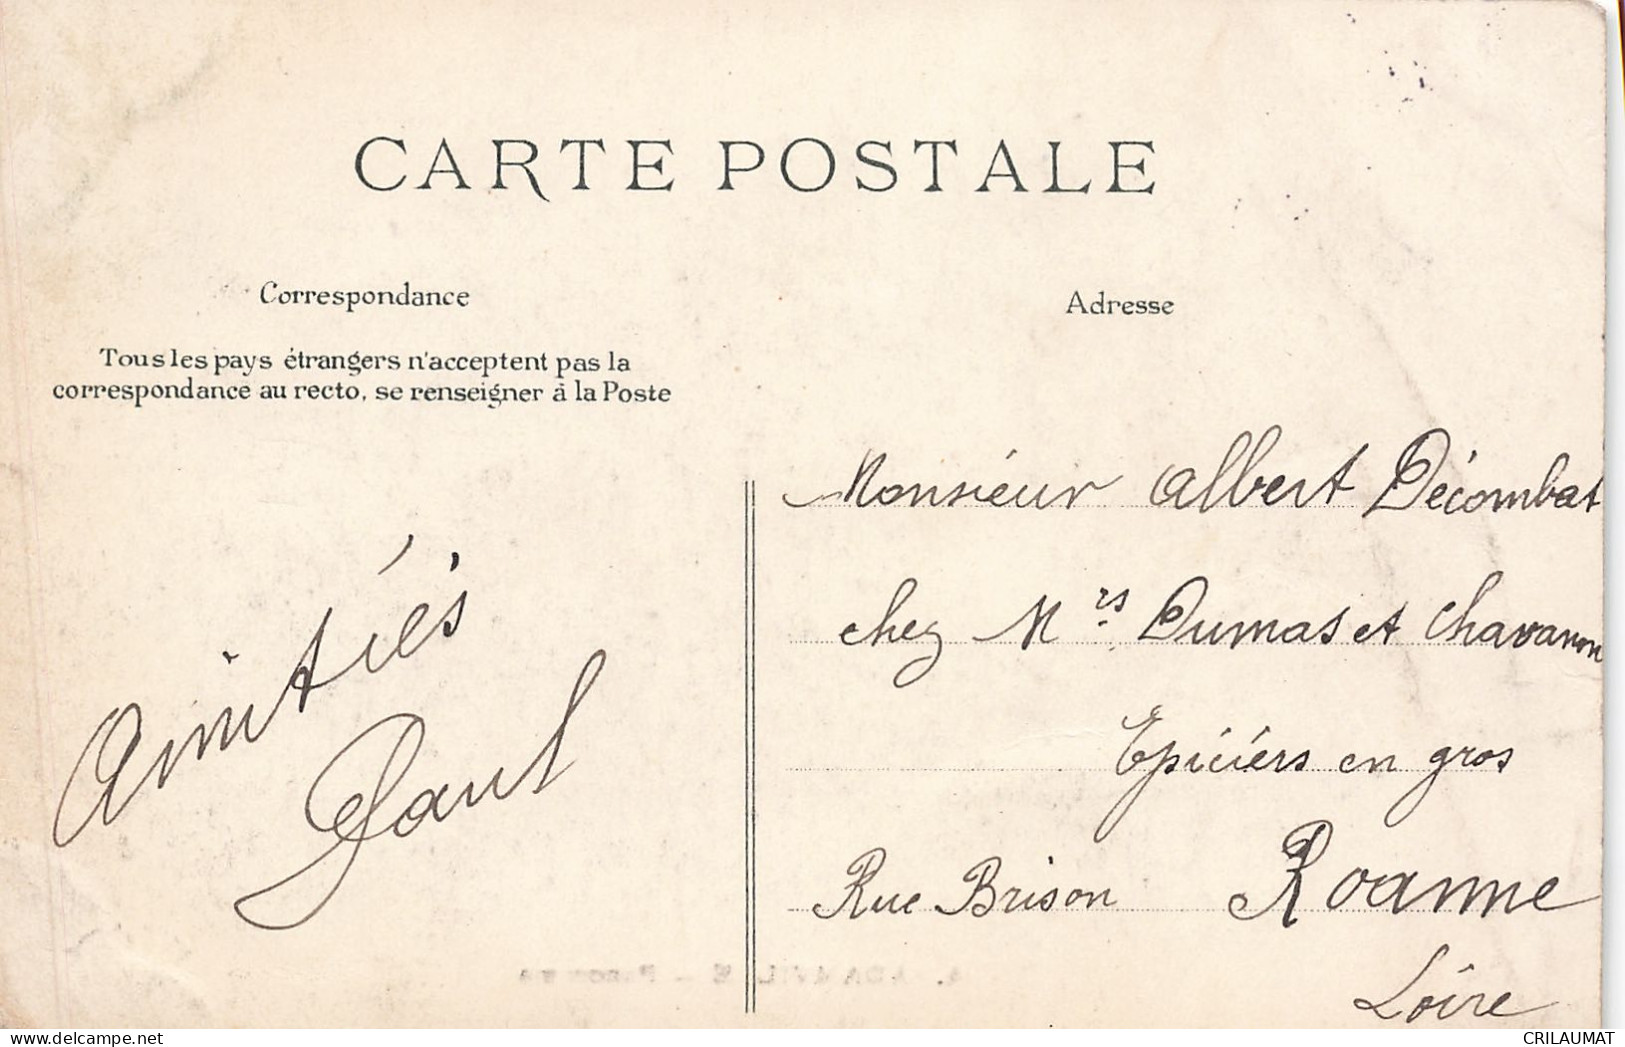 CARTE POSTALE
Correspondance
Tous les pays étrangers n'acceptent pas la
correspondance au recto, se renseigner à la Poste
Amitiés
Paul
Adresse
Monsieur Albert Décombat
chez Mrs. Dumas et Chavanon
Epiciers en gros
Rue Brison Roanne
Loire
delcampe.net
CRILAUMAT